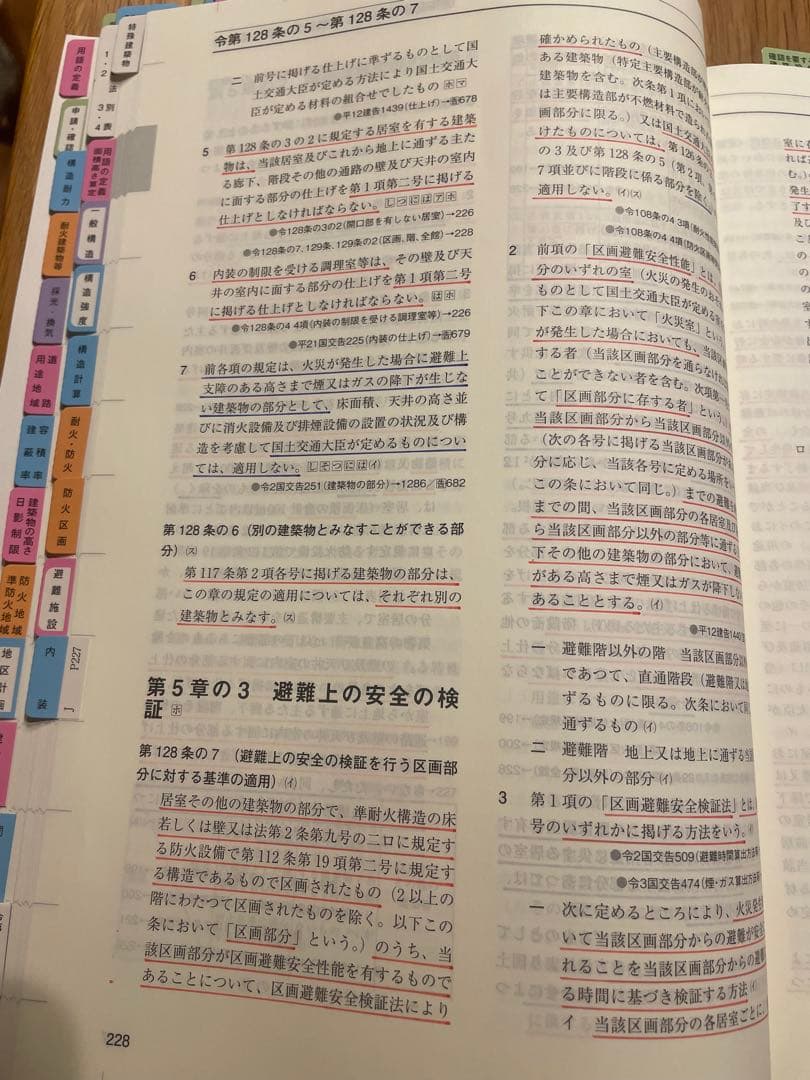 令第128条の5〜第128条の7
二 前号に掲げる仕上げに準ずるものとして国
土交通大臣が定める方法により国土交通大
臣が定める材料の組合せでしたもの ホマ
●平12建告1439(仕上げ)→画678
5 第128条の3の2に規定する居室を有する建築
物は、当該居室及びこれから地上に通ずる主た
る廊下、階段その他の通路の壁及び天井の室内
に面する部分の仕上げを第1項第二号に掲げる
仕上げとしなければならない。しつにはアホ
●令128条の3の2(開口部を有しない居室)→226
●令128条の7、129条、129条の2(区画、階、全館)→228
6 内装の制限を受ける調理室等は、その壁及び天
井の室内に面する部分の仕上げを第1項第二号
に掲げる仕上げとしなければならない。はホ
●令128条の4 4項(内装の制限を受ける調理室等)→226
●平21国交告225(内装の仕上げ)→画679
7 前各項の規定は、火災が発生した場合に避難上
支障のある高さまで煙又はガスの降下が生じな
い建築物の部分として、床面積、天井の高さ並
びに消火設備及び排煙設備の設置の状況及び構
造を考慮して国土交通大臣が定めるものについ
ては、適用しない。しそつには(イ)
●令2国交告251(建築物の部分)→1286/画682
第128条の6(別の建築物とみなすことができる部
分)(ス)
第117条第2項各号に掲げる建築物の部分は、
この章の規定の適用については、それぞれ別の
建築物とみなす。(ス)
第5章の3 避難上の安全の検
証 ホ
第128条の7(避難上の安全の検証を行う区画部
分に対する基準の適用)(イ)
居室その他の建築物の部分で、準耐火構造の床
若しくは壁又は法第2条第九号の二ロに規定す
る防火設備で第112条第19項第二号に規定す
る構造であるもので区画されたもの(2以上の
階にわたつて区画されたものを除く。以下この
条において「区画部分」という。)のうち、当
該区画部分が区画避難安全性能を有するもので
あることについて、区画避難安全検証法により
228
確かめられたもの(主要構造部が
ある建築物(特定主要構造部が
建築物を含む。次条第1項におい
は主要構造部が不燃材料で造られ
画部分に限る。)又は国土交通大
けたものについては、第126条の
の3及び第128条の5(第2項、
7項並びに階段に係る部分を除く
適用しない。(イ)(ス)
●令108条の4 3項(耐火性能
●令108条の4 4項(防火区画
2 前項の「区画避難安全性能」とは
分のいずれの室(火災の発生のおそ
ものとして国土交通大臣が定める室
下この章において「火災室」とい
が発生した場合においても、当該区
する者(当該区画部分を通らなけれ
ことができない者を含む。次項第一
て「区画部分に存する者」という。
当該区画部分から当該区画部分以外
(次の各号に掲げる当該区画部分が
分に応じ、当該各号に定める場所を
この条において同じ。)までの避難を
までの間、当該区画部分の各居室及び
ら当該区画部分以外の部分等に通ずる
下その他の建築物の部分において、避
がある高さまで煙又はガスが降下しな
あることとする。(イ)
●平12建告1440
一 避難階以外の階 当該区画部分以
であつて、直通階段(避難階又は
ずるものに限る。次条において同
通ずるもの(イ)
二 避難階 地上又は地上に通ずる当
分以外の部分(イ)
3 第1項の「区画避難安全検証法」とは、
号のいずれかに掲げる方法をいう。
●令2国交告509(避難時間算出方法等
●令3国交告474(煙・ガス算出方法
一 次に定めるところにより、火災発
いて当該区画部分からの避難が安
れることを当該区画部分からの避難
る時間に基づき検証する方法(イ)
イ 当該区画部分の各居室ごとに
特殊建築物
用語の定義
法別表
1・2
3・4
申請・確認
用語の定義
面積高さ算定
構造耐力
一般構造
耐火建築物等
構造強度
採光・換気
構造計算
道路
用途地域
耐火・防火
容積率
建蔽率
防火区画
建築物の高さ
日影制限
避難施設
防火地域
準防火地域
内装
P227
地区計画